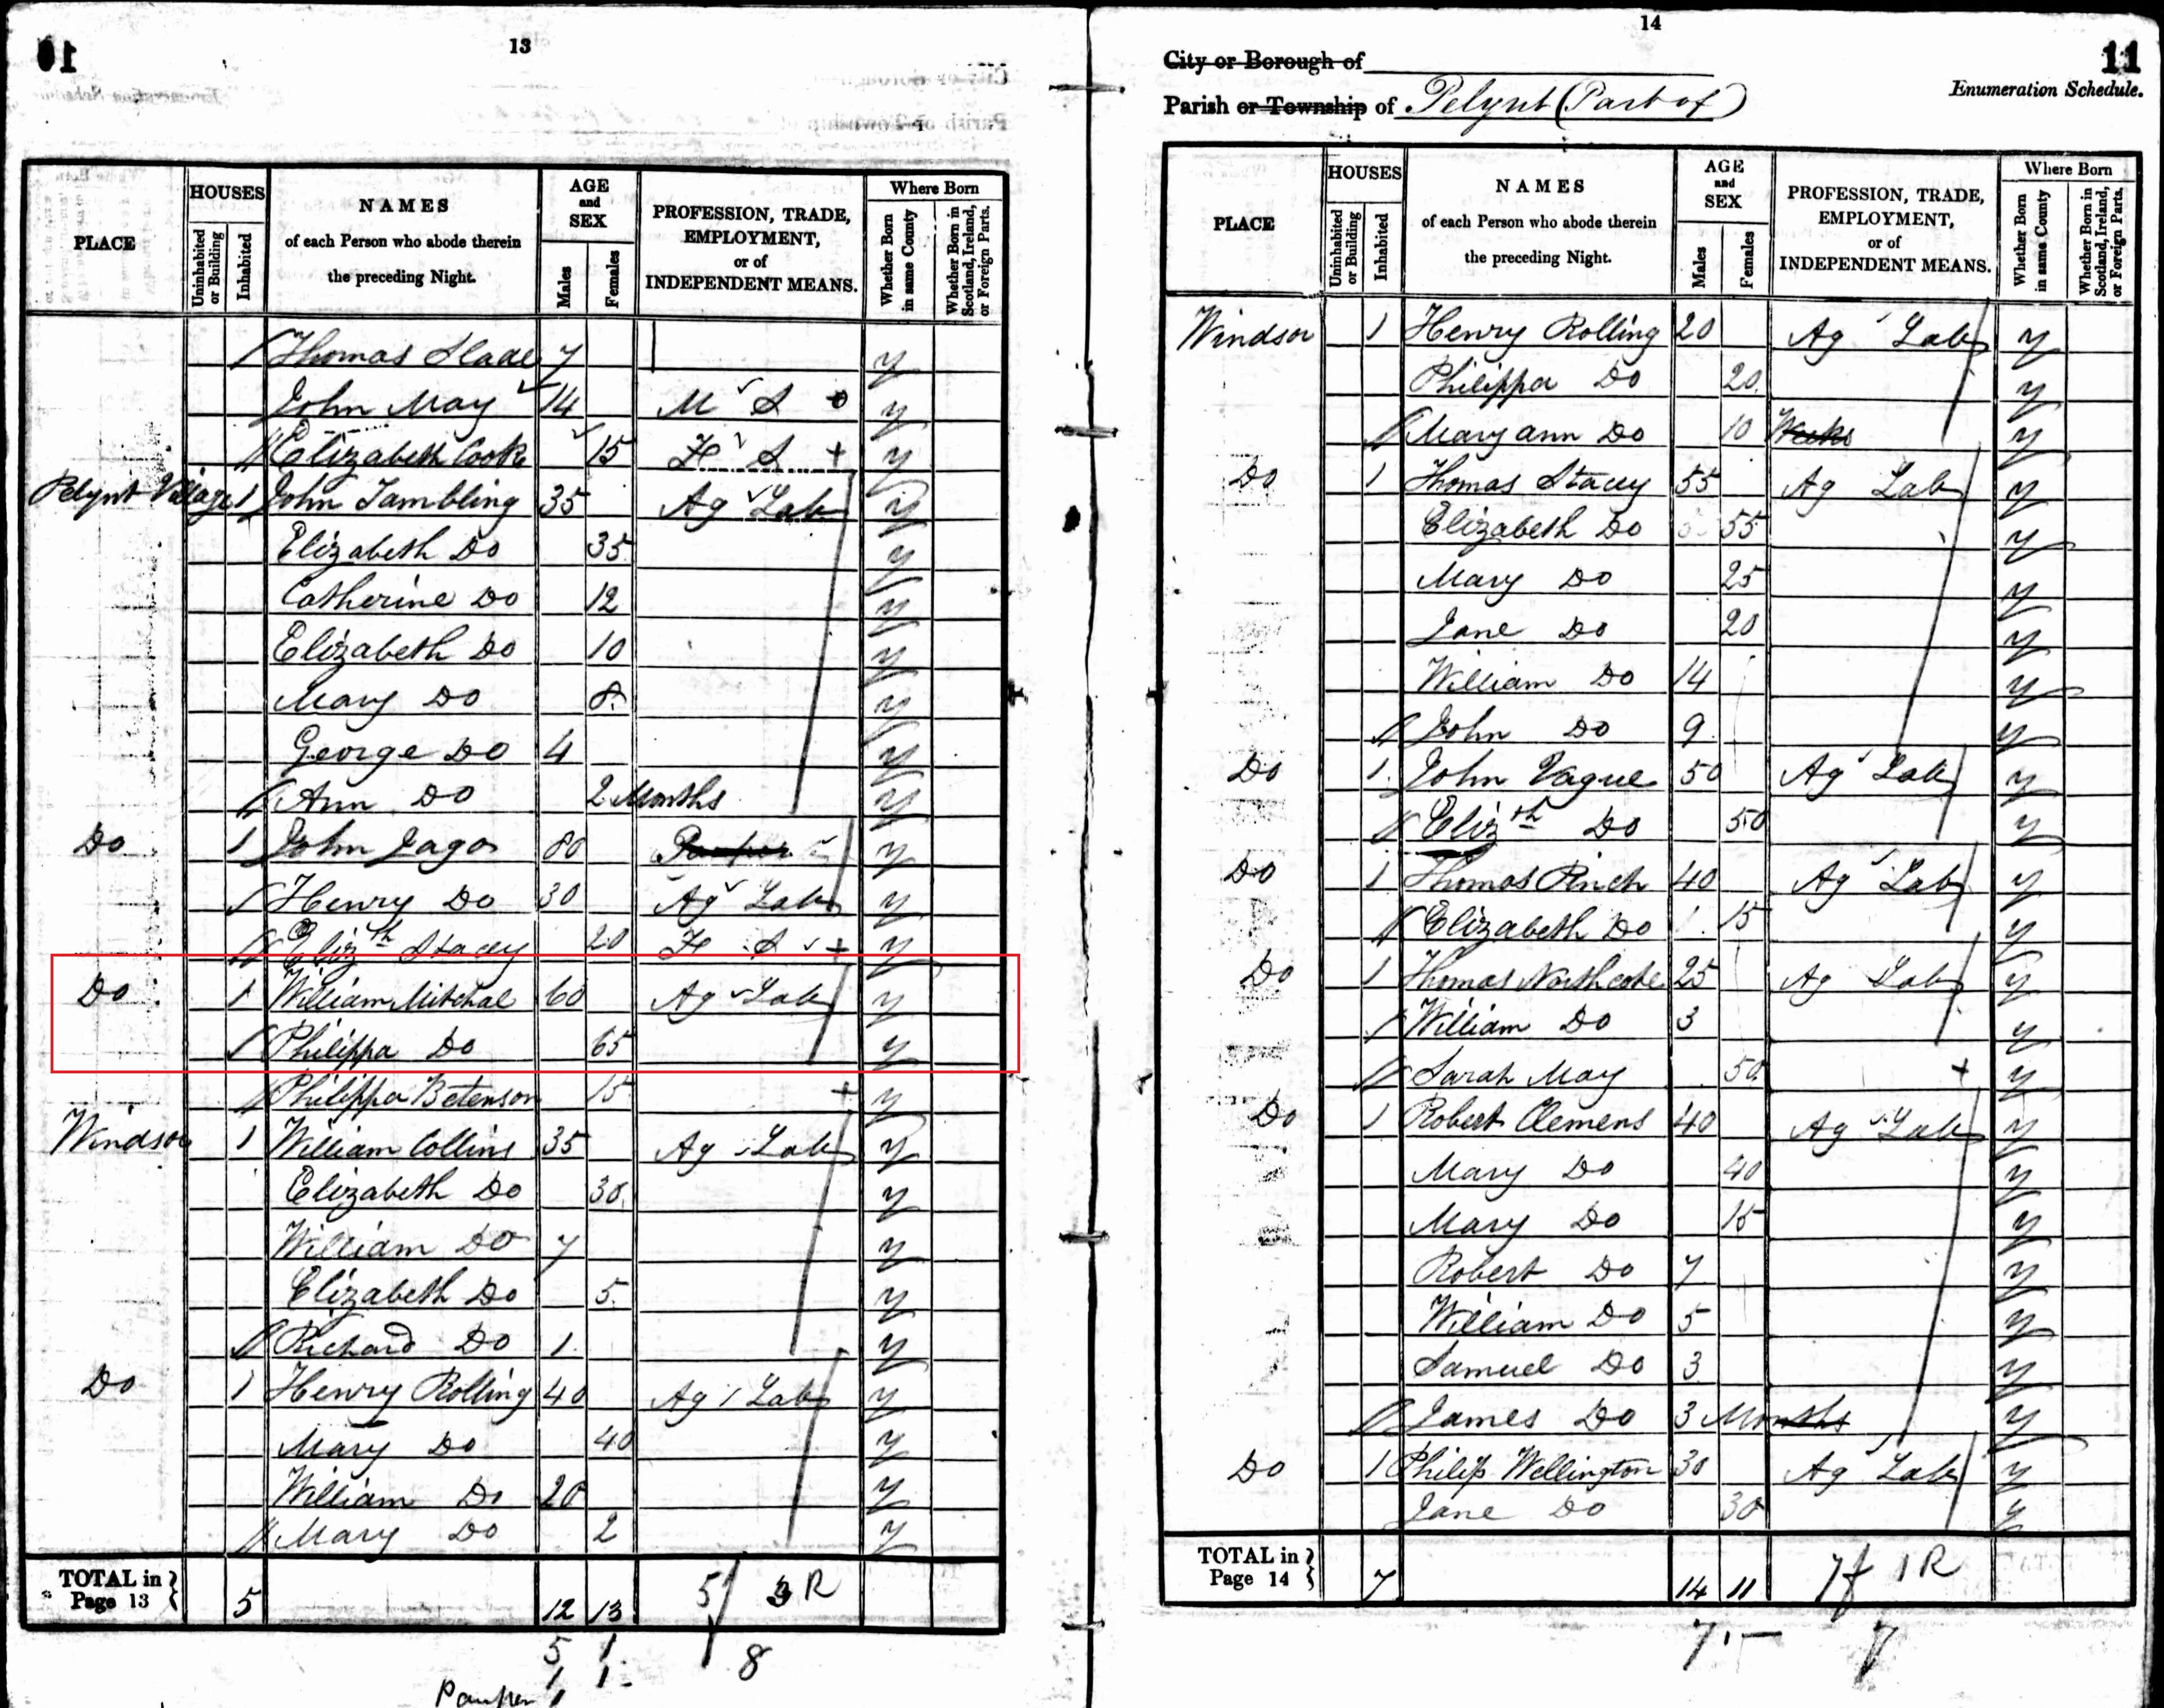 10
13
PLACE
HOUSES
Uninhabited or Building
Inhabited
NAMES
of each Person who abode therein
the preceding Night.
AGE
and
SEX
Males
Females
PROFESSION, TRADE,
EMPLOYMENT,
or of
INDEPENDENT MEANS.
Where Born
Whether Born in same County
Whether Born in Scotland, Ireland, or Foreign Parts.
Thomas Slade 7 y
John May 14 M S y
Elizabeth Cooke 15 F S + y
Pelynt Village 1 John Tambling 35 Ag Lab y
Elizabeth Do 35 y
Catherine Do 12 y
Elizabeth Do 10 y
Mary Do 8 y
George Do 4 y
Ann Do 2 Months y
Do 1 John Jago 80 Pauper y
Henry Do 30 Ag Lab y
Elizth Stacey 20 F S + y
Do 1 William Mitchal 60 Ag Lab y
Philippa Do 65 y
Philippa Betenson 15 + y
Windsor 1 William Collins 35 Ag Lab y
Elizabeth Do 30 y
William Do 7 y
Elizabeth Do 5 y
Richard Do 1 y
Do 1 Henry Rolling 40 Ag Lab y
Mary Do 40 y
William Do 20 y
Mary Do 2 y
TOTAL in
Page 13
5 12 13 5 R
5 1 8
1 1
Pauper 1
14
11
City or Borough of
Enumeration Schedule.
Parish or Township of Pelynt (Part of)
PLACE
HOUSES
Uninhabited or Building
Inhabited
NAMES
of each Person who abode therein
the preceding Night.
AGE
and
SEX
Males
Females
PROFESSION, TRADE,
EMPLOYMENT,
or of
INDEPENDENT MEANS.
Where Born
Whether Born in same County
Whether Born in Scotland, Ireland, or Foreign Parts.
Windsor 1 Henry Rolling 20 Ag Lab y
Philippa Do 20 y
Mary ann Do 10 Weeks y
Do 1 Thomas Stacey 55 Ag Lab y
Elizabeth Do 55 y
Mary Do 25 y
Jane Do 20 y
William Do 14 y
John Do 9 y
Do 1 John Vague 50 Ag Lab y
Elizth Do 50 y
Do 1 Thomas Pinch 40 Ag Lab y
Elizabeth Do 15 y
Do 1 Thomas Northcote 25 Ag Lab y
William Do 3 y
Sarah May 50 + y
Do 1 Robert Clemens 40 Ag Lab y
Mary Do 40 y
Mary Do 15 y
Robert Do 7 y
William Do 5 y
Samuel Do 3 y
James Do 3 Months y
Do 1 Philip Wellington 30 Ag Lab y
Jane Do 30 y
TOTAL in
Page 14
7 14 11 7f 1R
7 1 7